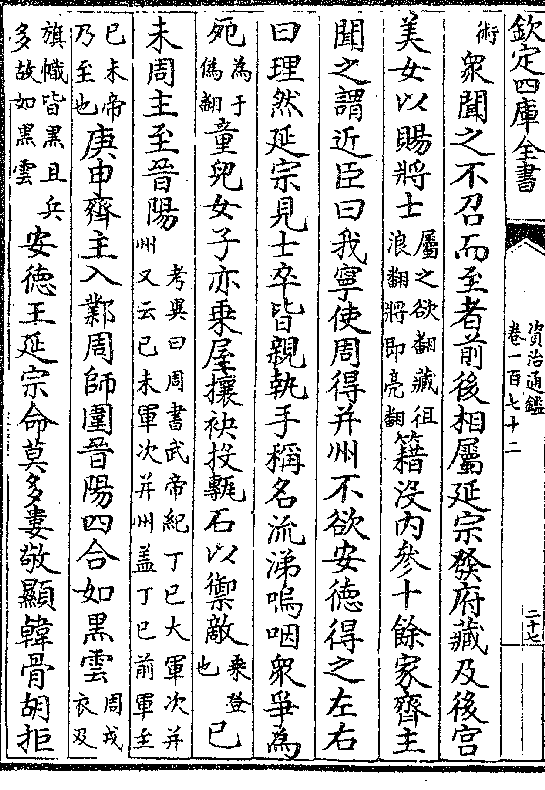 欽定四庫全書
資治通鑑
卷一百七十二
二十七
術衆聞之不召而至者前後相屬延宗發府藏及後宮
美女以賜將士屬之欲翻藏徂浪翻將即亮翻籍沒内參十餘家齊主
聞之謂近臣曰我寧使周得并州不欲安德得之左右
曰理然延宗見士卒皆親執手稱名流涕嗚咽衆爭為
死為于偽翻童兒女子亦乗屋攘袂投甎石以禦敵乗登也已
未周主至晉陽考異曰周書武帝紀丁巳大軍次并州又云已未軍次并州盖丁巳前軍至
已未帝乃至也庚申齊主入鄴周師圍晉陽四合如黒雲周戎衣及
旗幟皆黒且兵多故如黒雲安德王延宗命莫多婁敬顯韓骨胡拒